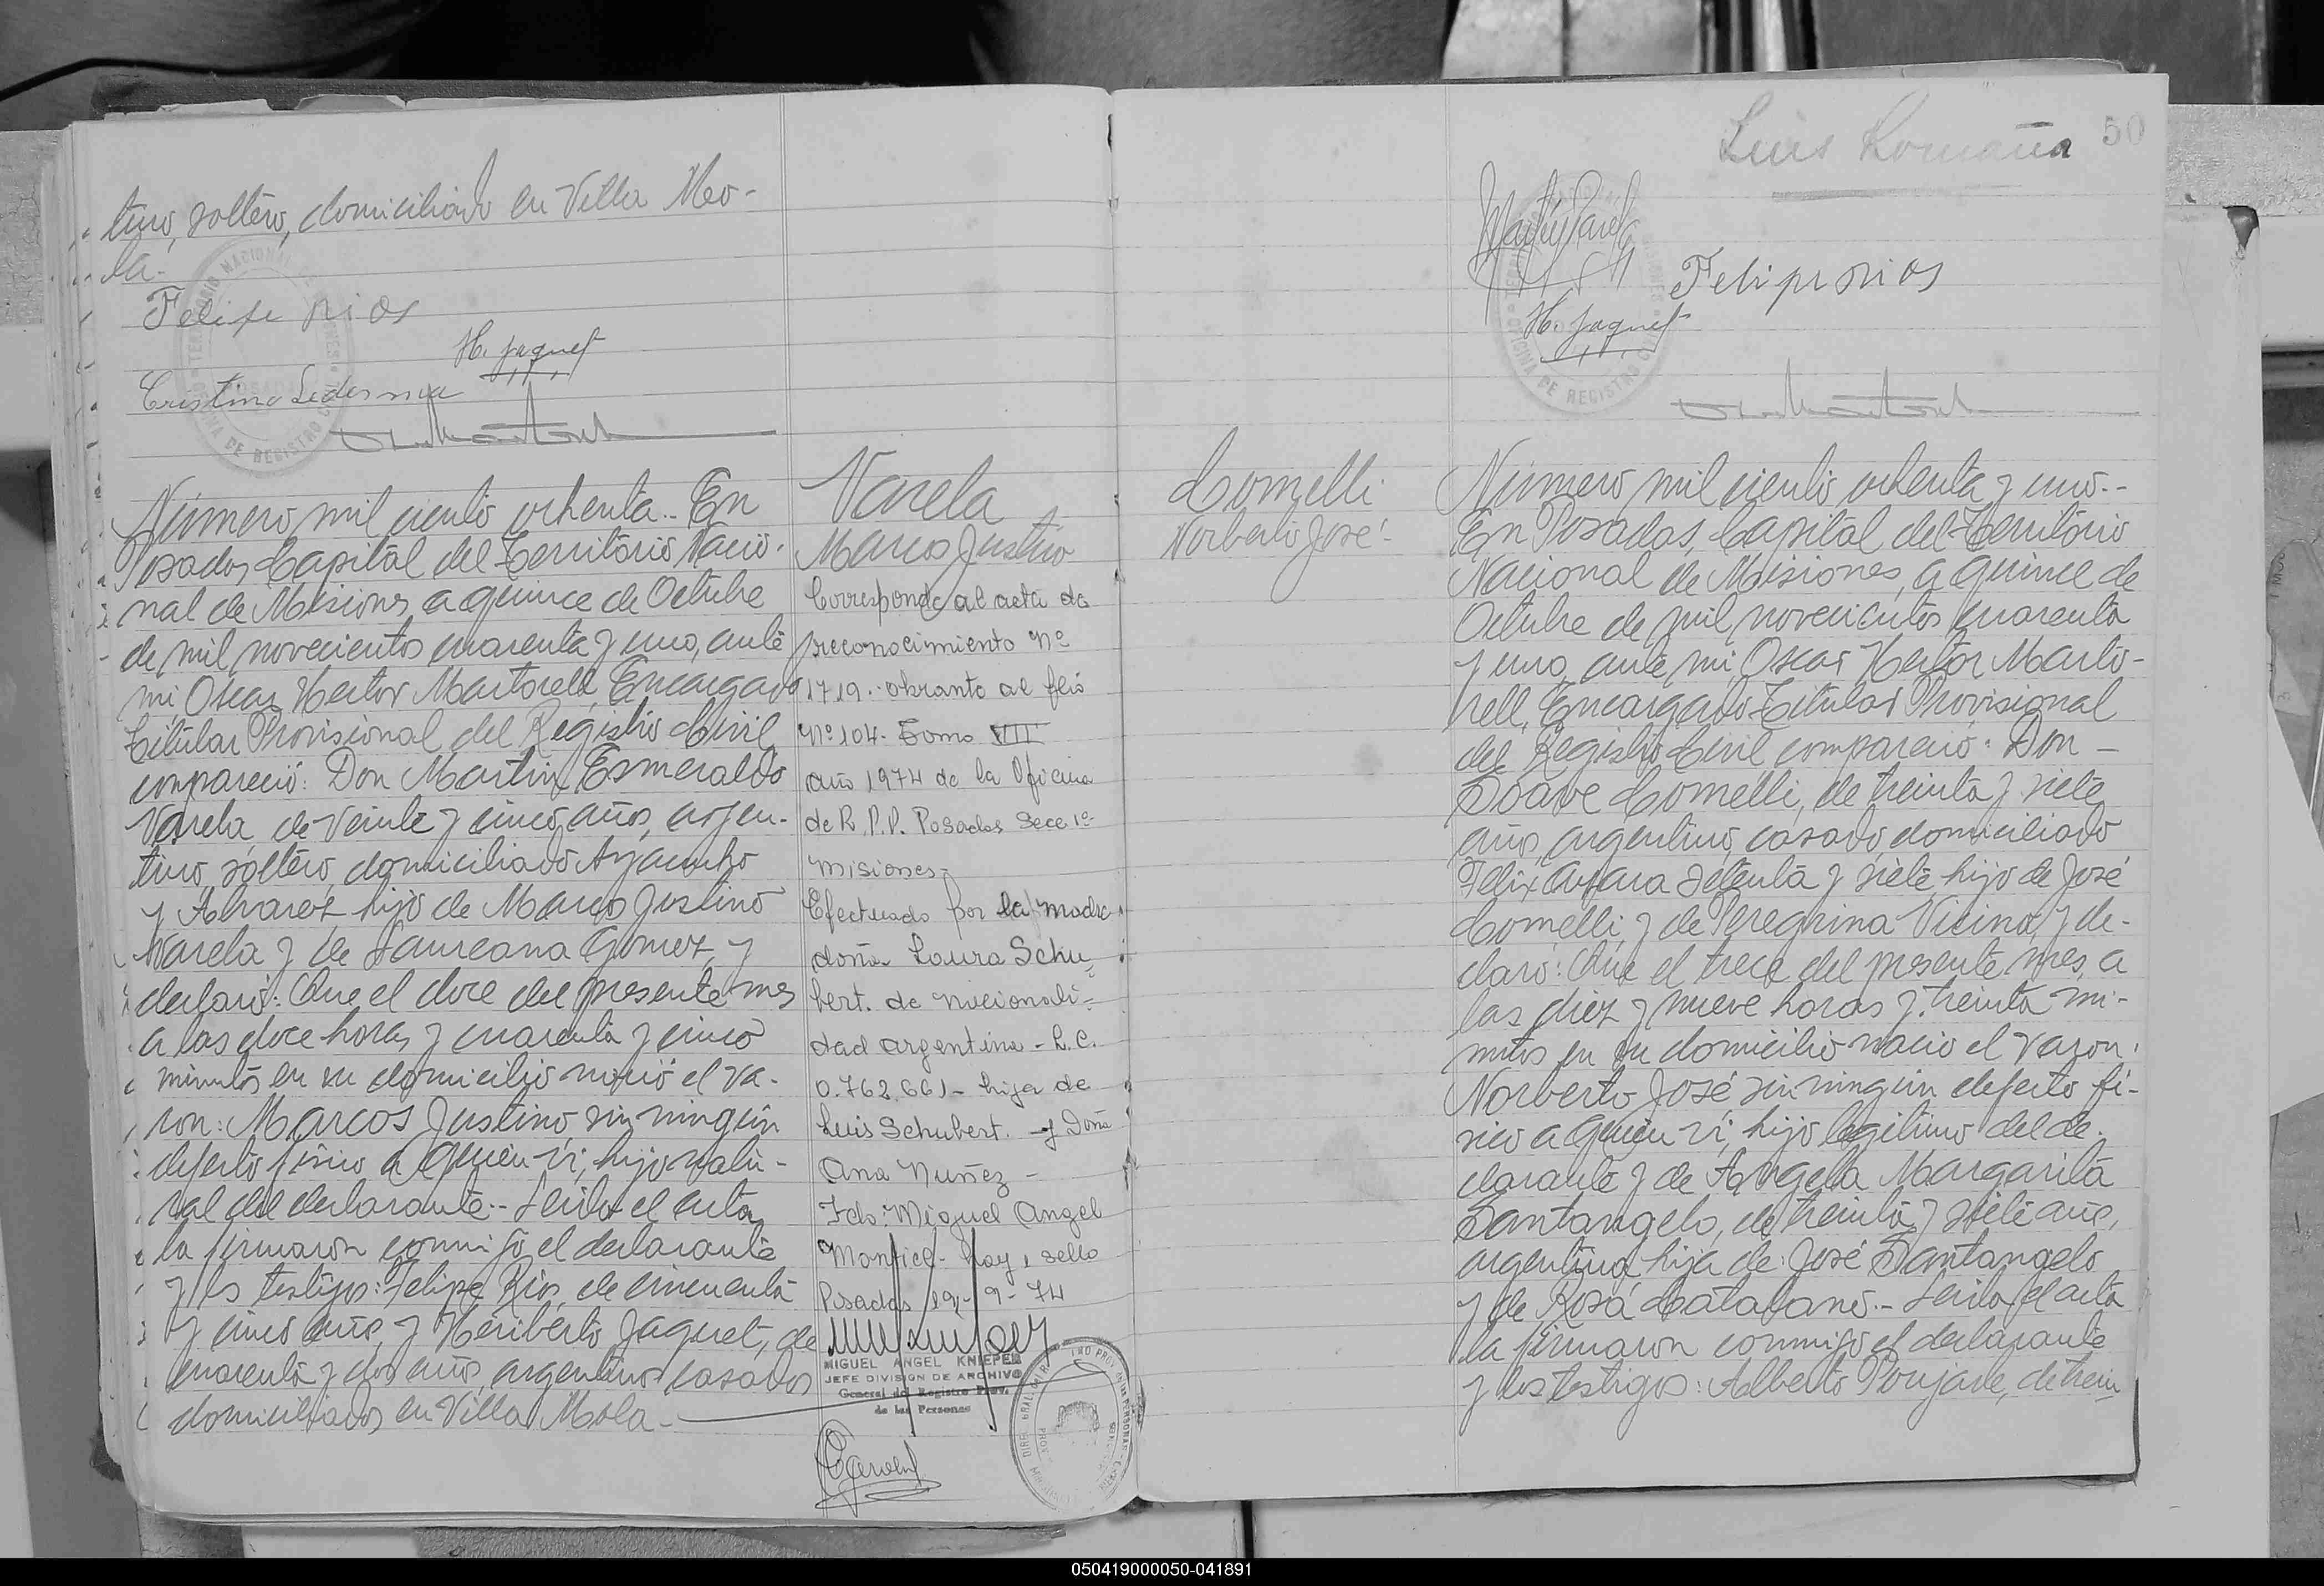 tino, soltero, domiciliado en Villa Mo-
la.-
Felipe Rios
H. Jaquet
Cristino Ledesma
Número mil ciento ochenta.- En
Posadas Capital del Territorio Nacio-
nal de Misiones, a quince de Octubre
de mil novecientos cuarenta y uno, ante
mi Oscar Hector Martorell, Encargado
Titular Provisional del Registro Civil,
compareció: Don Martin Esmeraldo
Varela, de veinte y cinco años, argen-
tino, soltero, domiciliado Ayacucho
y Alvarez hijo de Marcos Justino
Varela y de Laureana Gomez, y
declaró: Que el doce del presente mes
a las doce horas y cuarenta y cinco
minutos en su domicilio nació el va-
ron: Marcos Justino sin ningún
defecto físico a quien ví, hijo natu-
ral del declarante.- Leida el acta
la firmaron conmigo el declarante
y los testigos: Felipe Rios, de cincuenta
y cinco años, y Heriberto Jaquet, de
cuarenta y dos años, argentinos casados
domiciliados en Villa Mola.-
Varela
Marcos Justino
Corresponde al acta de
reconocimiento Nº
1719.- obrante al flio
Nº 104- Tomo VII
año 1974 de la Oficina
de R.P.P. Posadas Secc 1ª
Misiones-
Efectuado por la madre
doña Laura Schu-
bert. de nacionali-
dad argentina - L.C.
0.762.661- hija de
Luis Schubert. - y Doña
Ana Nuñez -
Fdo: Miguel Angel
Montiel- hay 1 sello
Posadas 19- 9- 74
MIGUEL ANGEL KNIEPER
JEFE DIVISION DE ARCHIVO
General del Registro Prov.
de las Personas
Luis Romaña
50
Martin Varela
Felipe Rios
H. Jaquet
OFICINA DE REGISTRO CIVIL
Comelli
Norberto José-
Número mil ciento ochenta y uno.-
En Posadas, Capital del Territorio
Nacional de Misiones, a quince de
Octubre de mil novecientos cuarenta
y uno, ante mi Oscar Hector Marto-
rell, Encargado Titular Provisional
del Registro Civil compareció: Don -
Soave Comelli, de treinta y siete
años, argentino, casado, domiciliado
Felix Azara setenta y siete, hijo de José
Comelli y de Peregrina Vicino, y de-
claró: Que el trece del presente mes, a
las diez y nueve horas y treinta mi-
nutos en su domicilio nació el varon:
Norberto José sin ningún defecto fí-
sico a quien ví, hijo legítimo del de-
clarante y de Angela Margarita
Santangelo, de treinta y siete años,
argentina, hija de: José Santangelo
y de Rosa Catalano.- Leida el acta
la firmaron conmigo el declarante
y los testigos: Alberto Poujade, de trein
050419000050-041891